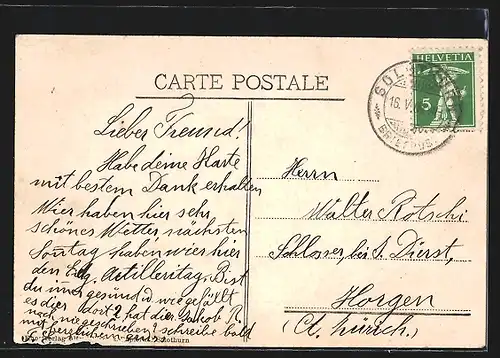 CARTE POSTALE
HELVETIA
5
SOL
16. V.
BRIEF
Lieber Freund!
Habe deine Karte
mit bestem Dank erhalten
Wier haben hier sehr
schönes Witter nächsten
Sontag haben wies hier
den Eidg. Artilleritag. Bist
du imer gesund u. wie gefällt
es dier dort? hat dier Jakob R.
noch nie geschrieben? schreibe bald
mit herzlichen gruß
Herrn
Walter Rötschi
Schlosser, bei S. Dierst,
Horgen
(Ct. Zürich.)